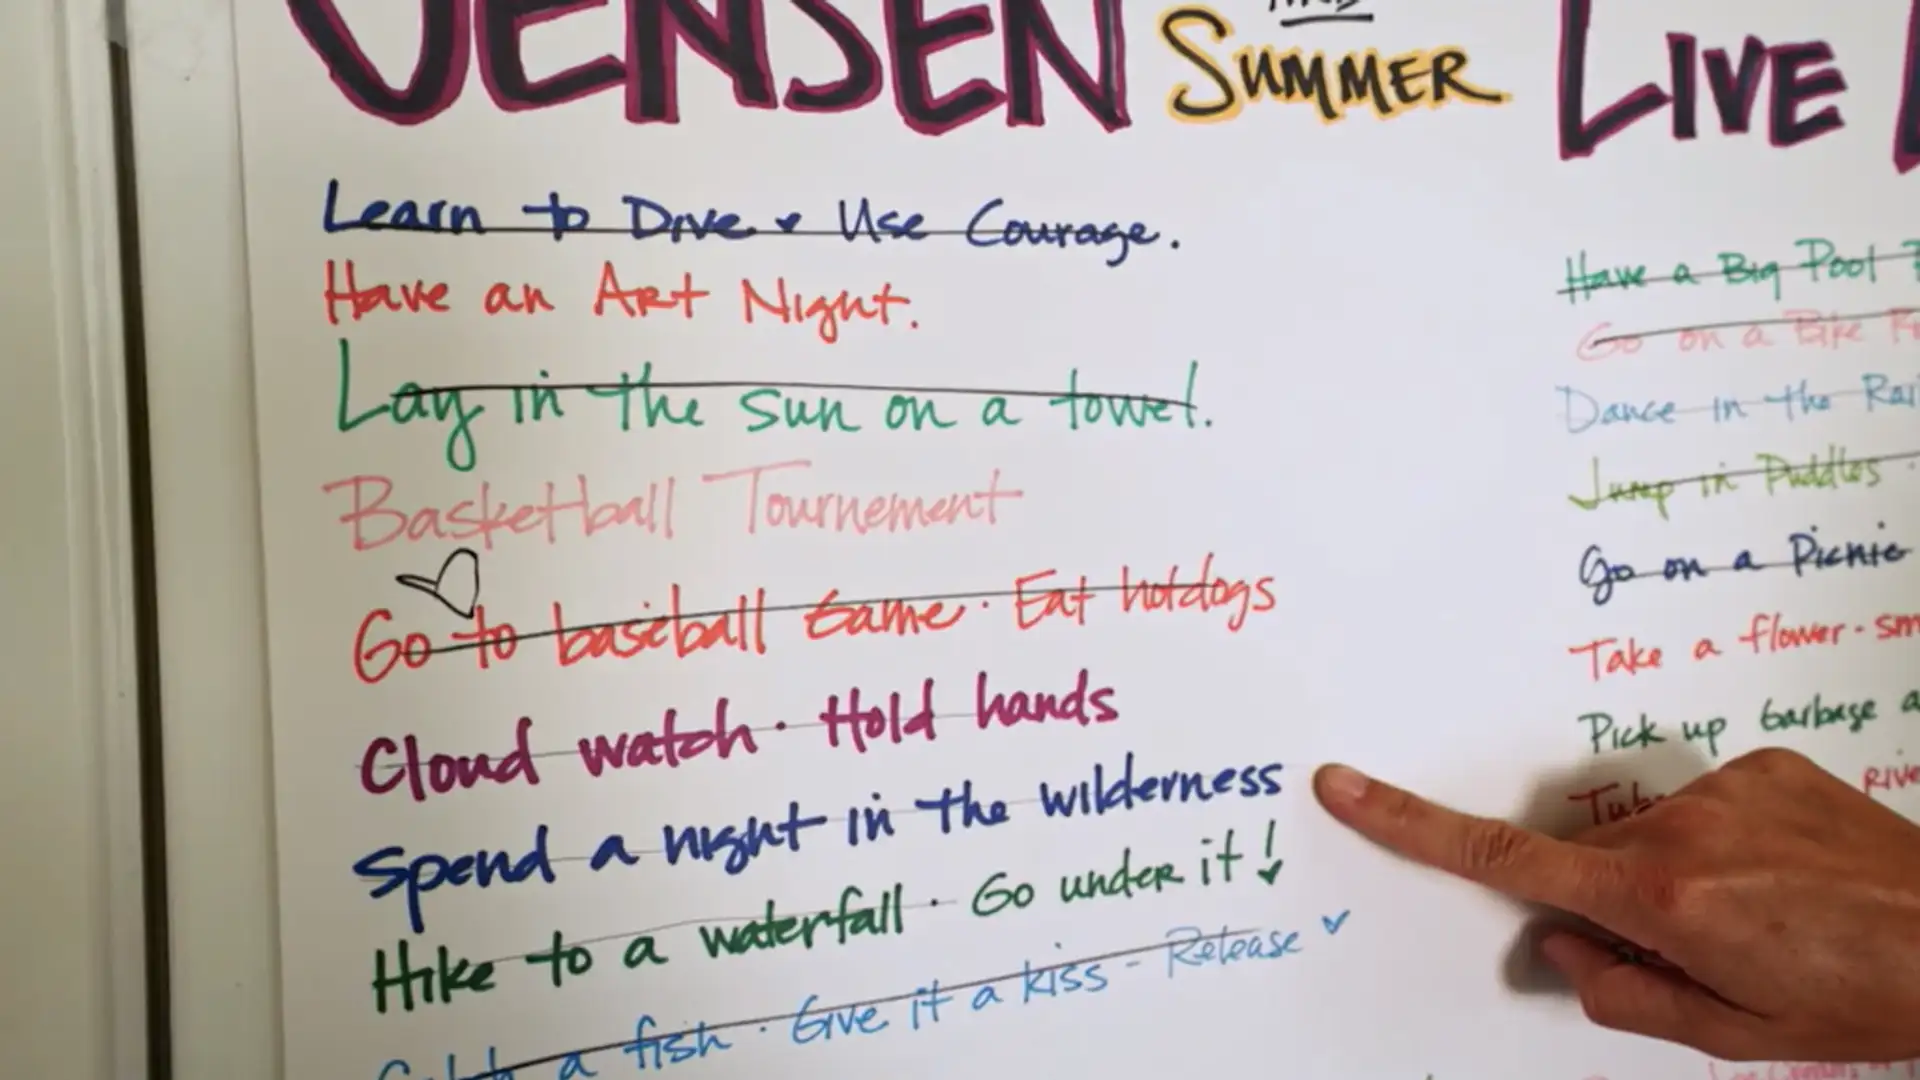 JENSEN AND SUMMER LIVE
Learn to Dive & Use Courage.
Have an Art Night.
Lay in the sun on a towel.
Basketball Tournement
Go to baseball Game · Eat hotdogs
Cloud watch · Hold hands
Spend a night in the wilderness
Hike to a waterfall · Go under it!
a fish · Give it a kiss - Release
Have a Big Pool
Go on a Bike
Dance in the
Jump in Puddles
Go on a Picnic
Take a flower -
Pick up Garbage